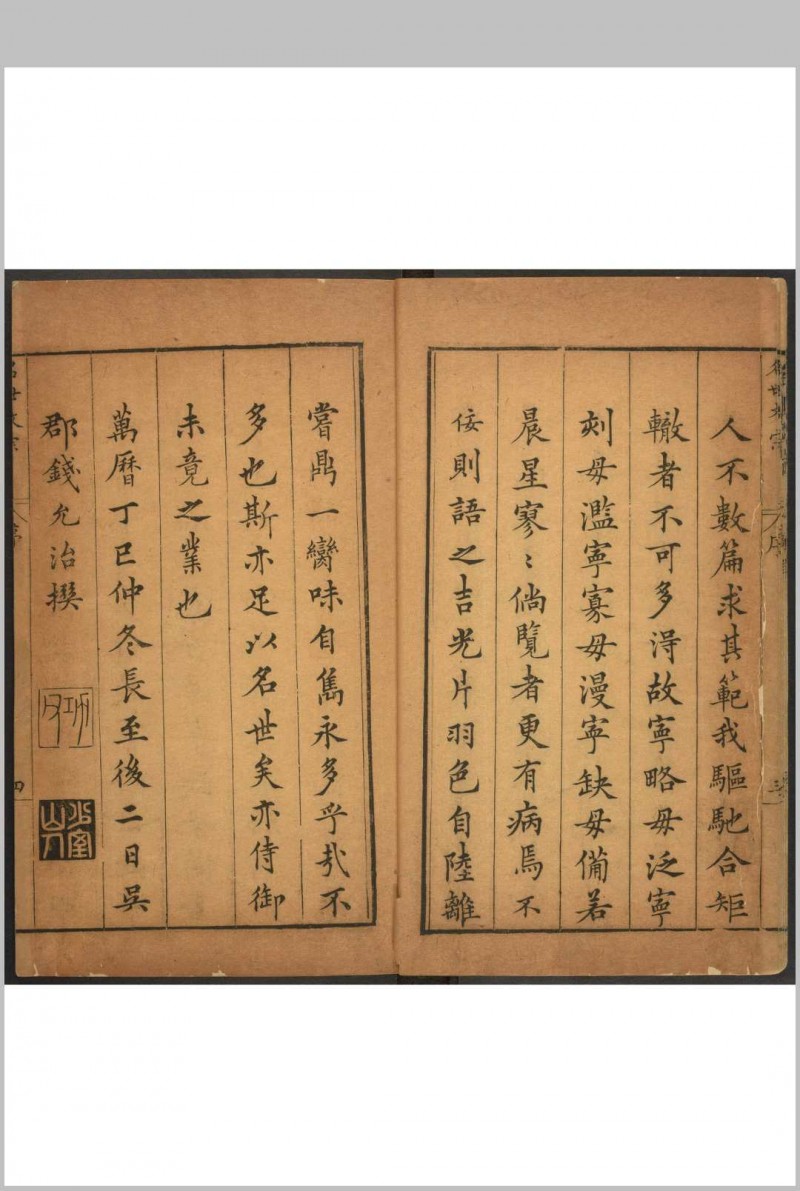 人不數篇求其範我驅馳合矩
轍者不可多淂故寧略毋泛寧
刻毋濫寧寡毋漫寧缺毋備若
晨星寥〻倘覽者更有病焉不
佞則語之吉光片羽色自陸離
嘗鼎一臠味自雋永多乎㢤不
多也斯亦足以名世矣亦侍御
未竟之業也
萬曆丁巳仲冬長至後二日吳
郡錢允治撰
四